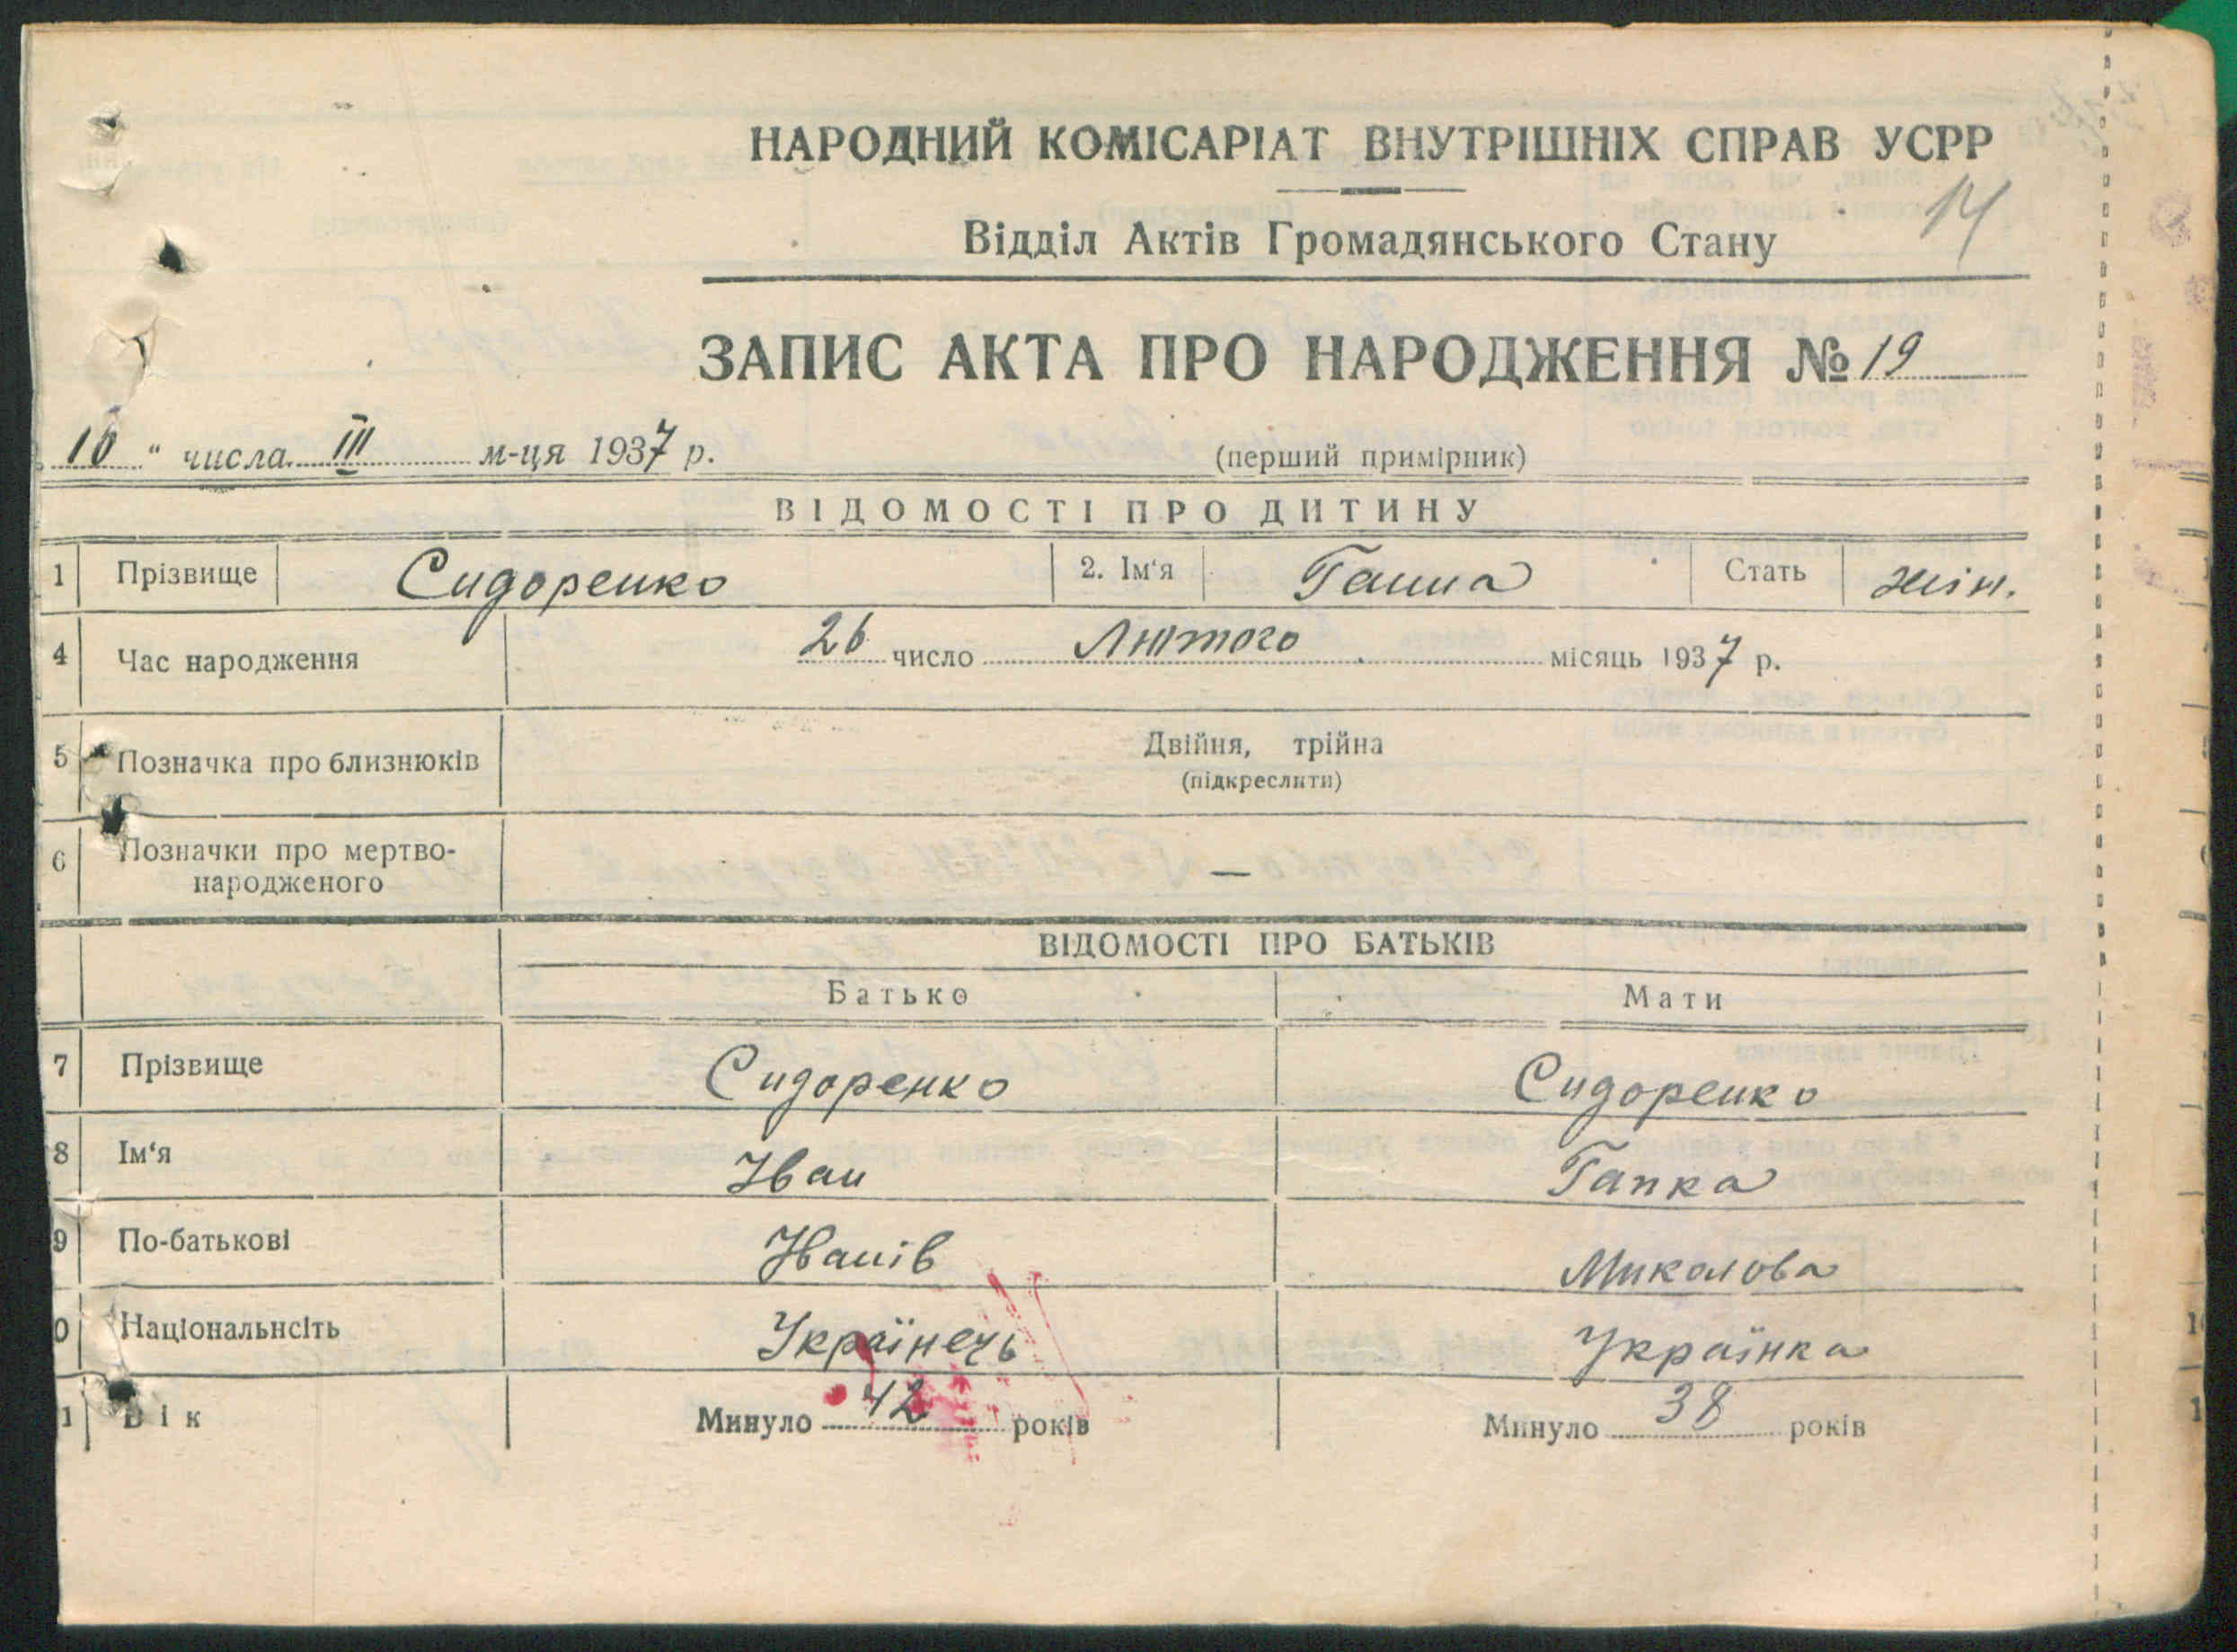 НАРОДНИЙ КОМІСАРІАТ ВНУТРІШНІХ СПРАВ УСРР
Відділ Актів Громадянського Стану 14
ЗАПИС АКТА ПРО НАРОДЖЕННЯ № 19
10 " числа III м-ця 1937 р. (перший примірник)
ВІДОМОСТІ ПРО ДИТИНУ
1 Прізвище Сидоренко 2. Ім'я Ганна Стать жін.
4 Час народження 26 число Лютого місяць 1937 р.
5 Позначка про близнюків Двійня, трійна
(підкреслити)
6 Позначки про мертво-
народженого —
ВІДОМОСТІ ПРО БАТЬКІВ
Батько Мати
7 Прізвище Сидоренко Сидоренко
8 Ім'я Іван Гапка
9 По-батькові Іванів Миколова
0 Національнсіть Українець Українка
1 Вік Минуло 42 років Минуло 38 років